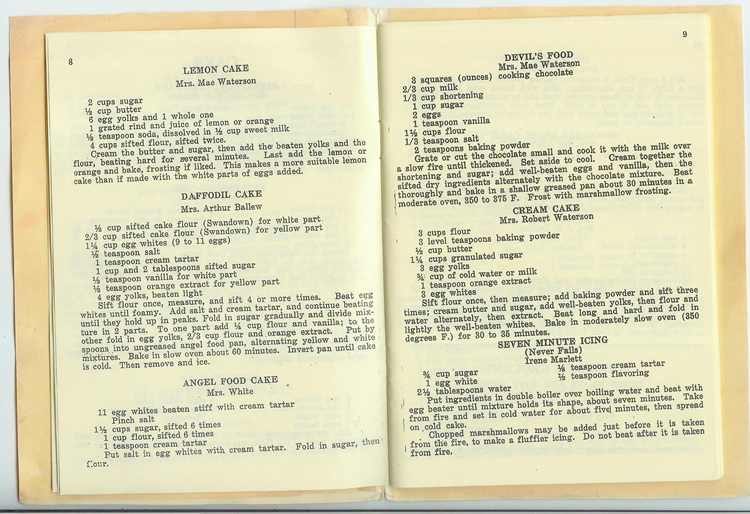 8
LEMON CAKE
Mrs. Mae Waterson
2 cups sugar
½ cup butter
6 egg yolks and 1 whole one
1 grated rind and juice of lemon or orange
½ teaspoon soda, dissolved in ½ cup sweet milk
4 cups sifted flour, sifted twice.
Cream the butter and sugar, then add the beaten yolks and the
flour, beating hard for several minutes. Last add the lemon or
orange and bake, frosting if liked. This makes a more suitable lemon
cake than if made with the white parts of eggs added.
DAFFODIL CAKE
Mrs. Arthur Ballew
½ cup sifted cake flour (Swandown) for white part
2/3 cup sifted cake flour (Swandown) for yellow part
1¼ cup egg whites (9 to 11 eggs)
½ teaspoon salt
1 teaspoon cream tartar
1 cup and 2 tablespoons sifted sugar
½ teaspoon vanilla for white part
½ teaspoon orange extract for yellow part
4 egg yolks, beaten light
Sift flour once, measure, and sift 4 or more times. Beat egg
whites until foamy. Add salt and cream tartar, and continue beating
until they hold up in peaks. Fold in sugar gradually and divide mix-
ture in 2 parts. To one part add ¼ cup flour and vanilla; to the
other fold in egg yolks, 2/3 cup flour and orange extract. Put by
spoons into ungreased angel food pan, alternating yellow and white
mixtures. Bake in slow oven about 60 minutes. Invert pan until cake
is cold. Then remove and ice.
ANGEL FOOD CAKE
Mrs. White
11 egg whites beaten stiff with cream tartar
Pinch salt
1½ cups sugar, sifted 6 times
1 cup flour, sifted 6 times
1 teaspoon cream tartar
Put salt in egg whites with cream tartar. Fold in sugar, then
flour.
9
DEVIL'S FOOD
Mrs. Mae Waterson
3 squares (ounces) cooking chocolate
2/3 cup milk
1/3 cup shortening
1 cup sugar
2 eggs
1 teaspoon vanilla
1½ cups flour
1/3 teaspoon salt
2 teaspoons baking powder
Grate or cut the chocolate small and cook it with the milk over
a slow fire until thickened. Set aside to cool. Cream together the
shortening and sugar; add well-beaten eggs and vanilla, then the
sifted dry ingredients alternately with the chocolate mixture. Beat
thoroughly and bake in a shallow greased pan about 30 minutes in a
moderate oven, 350 to 375 F. Frost with marshmallow frosting.
CREAM CAKE
Mrs. Robert Waterson
3 cups flour
3 level teaspoons baking powder
½ cup butter
1¼ cups granulated sugar
3 egg yolks
¾ cup of cold water or milk
1 teaspoon orange extract
3 egg whites
Sift flour once, then measure; add baking powder and sift three
times; cream butter and sugar, add well-beaten yolks, then flour and
water alternately, then extract. Beat long and hard and fold in
lightly the well-beaten whites. Bake in moderately slow oven (350
degrees F.) for 30 to 35 minutes.
SEVEN MINUTE ICING
(Never Fails)
Irene Marlett
¾ cup sugar ⅛ teaspoon cream tartar
1 egg white ½ teaspoon flavoring
2½ tablespoons water
Put ingredients in double boiler over boiling water and beat with
egg beater until mixture holds its shape, about seven minutes. Take
from fire and set in cold water for about five minutes, then spread
on cold cake.
Chopped marshmallows may be added just before it is taken
from the fire, to make a fluffier icing. Do not beat after it is taken
from fire.